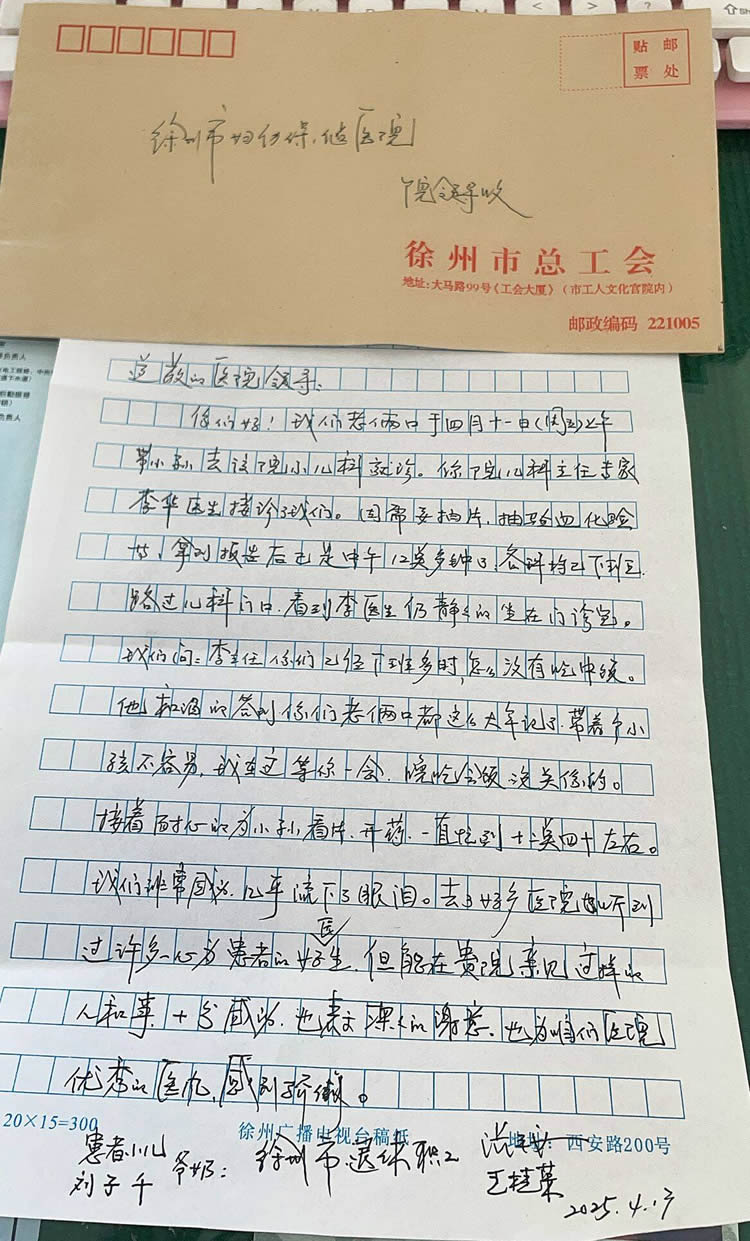 贴 邮
票 处
徐州市妇幼保健医院
院领导收
徐州市总工会
地址:大马路99号《工会大厦》(市工人文化宫院内)
邮政编码 221005
负责人
尊敬的医院领导:
你们好!我们老俩口于四月十一日(周五)上午
带小孙去该院小儿科就诊。你院儿科主任专家
李华医生接诊了我们。因需要拍片,抽血化验
等,拿到报告后已是中午12点多钟了,各科均已下班,
路过儿科门口,看到李医生仍静静的坐在门诊室。
我们问:李主任你们已经下班多时,怎么没有吃中饭。
他和谒的答到你们老俩口都这么大年记了,带着个小
孩不容易,我在这等你一会,晚吃会饭没关係的。
接着耐心的为小孙看片、开药、一直忙到十二点四十左右。
我们非常感动,几乎流下了眼泪。去了好多医院也听到
过许多一心为患者的好医生,但能在贵院亲见这样的
人和事,十分感动,也表文深深的谢意,也为咱们医院
优秀的医风,感到骄傲。
20×15=300
徐州广播电视台稿纸
地址:西安路200号
患者小儿
刘子千
爷奶:徐州市退休职工
王桂荣
2025.4.13